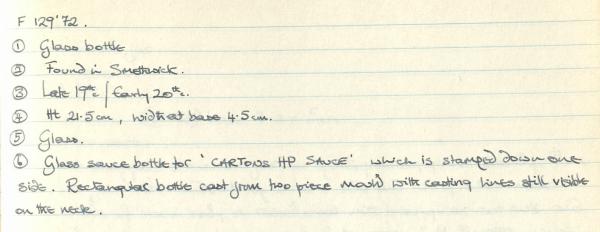 F 129'72.
① Glass bottle
② Found in Smethwick.
③ Late 19th c / Early 20th c.
④ Ht 21.5cm, width at base 4.5cm.
⑤ Glass.
⑥ Glass sauce bottle for 'CARTONS HP SAUCE' which is stamped down one
side. Rectangular bottle cast from two piece mould with casting lines still visible
on the neck.